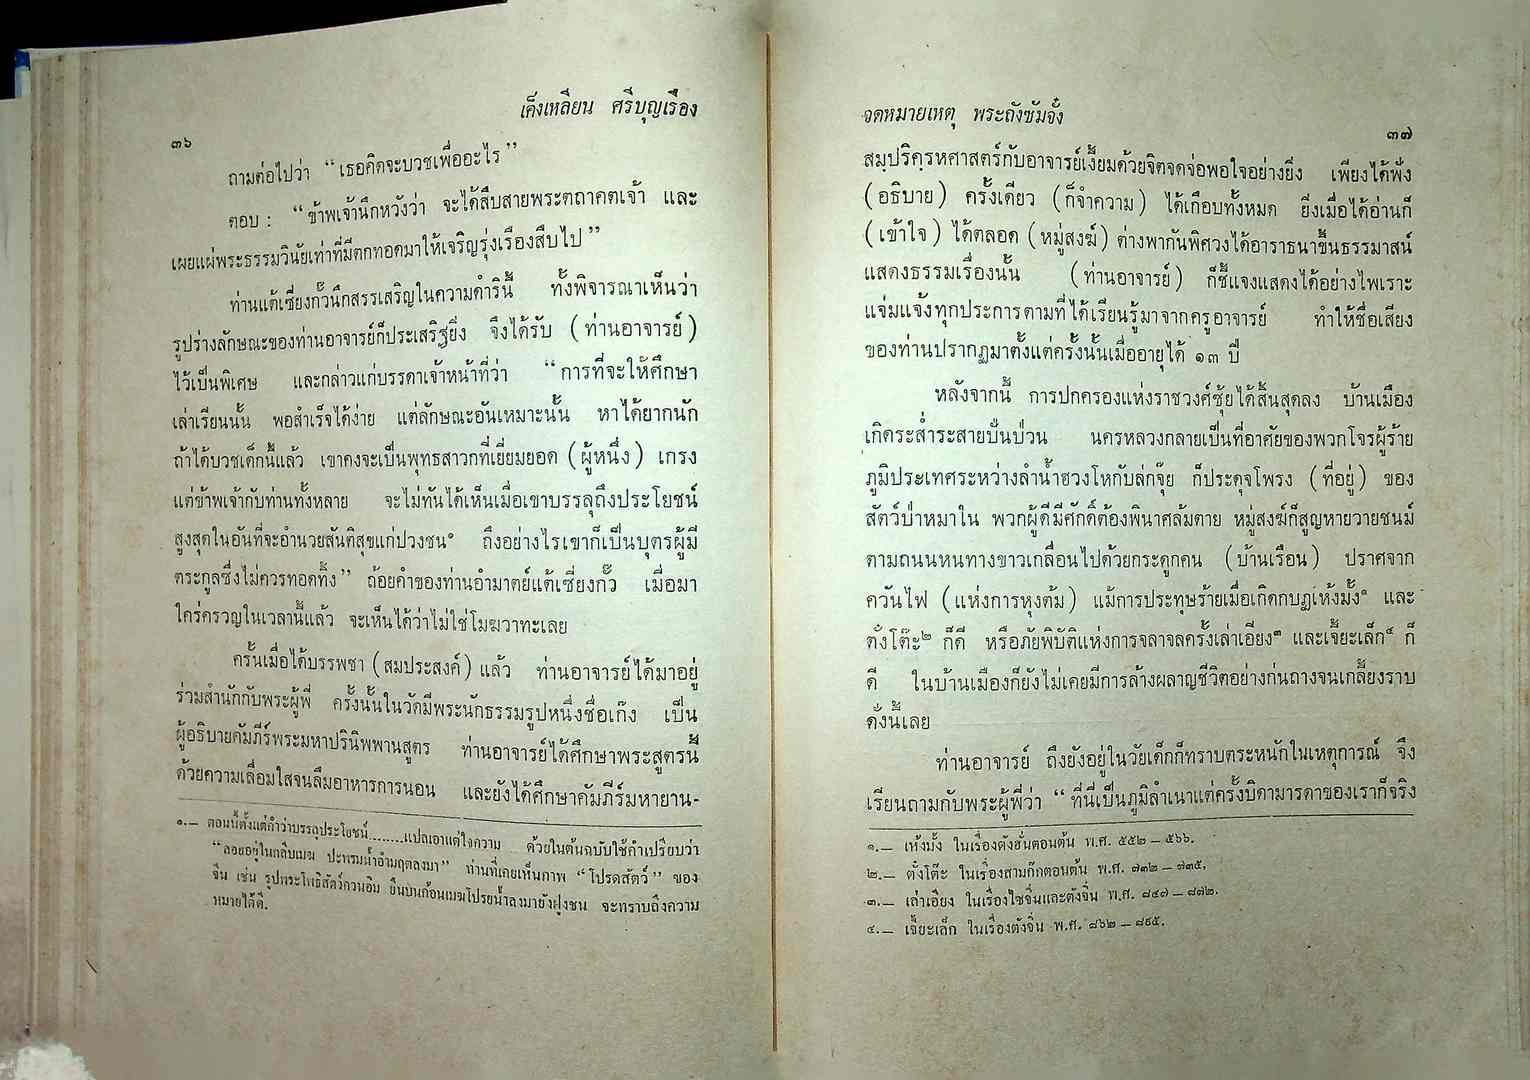 เค็งเหลียน ศรีบุญเรือง
๓๖
ถามต่อไปว่า “เธอคิดจะบวชเพื่ออะไร”
ตอบ : “ข้าพเจ้านึกหวังว่า จะได้สืบสายพระตถาคตเจ้า และ
เผยแผ่พระธรรมวินัยเท่าที่มีตกทอดมาให้เจริญรุ่งเรืองสืบไป”
ท่านแต้เซี่ยงกั๊วนึกสรรเสริญในความดำรินี้ ทั้งพิจารณาเห็นว่า
รูปร่างลักษณะของท่านอาจารย์ก็ประเสริฐยิ่ง จึงได้รับ (ท่านอาจารย์)
ไว้เป็นพิเศษ และกล่าวแก่บรรดาเจ้าหน้าที่ว่า “การที่จะให้ศึกษา
เล่าเรียนนั้น พอสำเร็จได้ง่าย แต่ลักษณะอันเหมาะนั้น หาได้ยากนัก
ถ้าได้บวชเด็กนี้แล้ว เขาคงจะเป็นพุทธสาวกที่เยี่ยมยอด (ผู้หนึ่ง) เกรง
แต่ข้าพเจ้ากับท่านทั้งหลาย จะไม่ทันได้เห็นเมื่อเขาบรรลุถึงประโยชน์
สูงสุดในอันที่จะอำนวยสันติสุขแก่ปวงชน๑ ถึงอย่างไรเขาก็เป็นบุตรผู้มี
ตระกูลซึ่งไม่ควรทอดทิ้ง” ถ้อยคำของท่านอำมาตย์แต้เซี่ยงกั๊ว เมื่อมา
ใคร่ครวญในเวลานี้แล้ว จะเห็นได้ว่าไม่ใช่โมฆวาทะเลย
ครั้นเมื่อได้บรรพชา (สมประสงค์) แล้ว ท่านอาจารย์ได้มาอยู่
ร่วมสำนักกับพระผู้พี่ ครั้งนั้นในวัดมีพระนักธรรมรูปหนึ่งชื่อเก๊ง เป็น
ผู้อธิบายคัมภีร์พระมหาปรินิพพานสูตร ท่านอาจารย์ได้ศึกษาพระสูตรนี้
ด้วยความเลื่อมใสจนลืมอาหารการนอน และยังได้ศึกษาคัมภีร์มหายาน-
๑.— ตอนนี้ตั้งแต่คำว่าบรรลุประโยชน์........แปลเอาแต่ใจความ ด้วยในต้นฉบับใช้คำเปรียบว่า
“ลอยอยู่ในกลีบเมฆ ปะพรมน้ำอำมฤตลงมา” ท่านที่เคยเห็นภาพ “โปรดสัตว์” ของ
จีน เช่น รูปพระโพธิสัตว์กวนอิม ยืนบนก้อนเมฆโปรยน้ำลงมายังฝูงชน จะทราบถึงความ
หมายได้ดี.
จดหมายเหตุ พระถังซัมจั๋ง
๓๗
สมปริคฺรหศาสตร์กับอาจารย์เงี้ยมด้วยจิตจดจ่อพอใจอย่างยิ่ง เพียงได้ฟัง
(อธิบาย) ครั้งเดียว (ก็จำความ) ได้เกือบทั้งหมด ยิ่งเมื่อได้อ่านก็
(เข้าใจ) ได้ตลอด (หมู่สงฆ์) ต่างพากันพิศวงได้อาราธนาขึ้นธรรมาสน์
แสดงธรรมเรื่องนั้น (ท่านอาจารย์) ก็ชี้แจงแสดงได้อย่างไพเราะ
แจ่มแจ้งทุกประการตามที่ได้เรียนรู้มาจากครูอาจารย์ ทำให้ชื่อเสียง
ของท่านปรากฏมาตั้งแต่ครั้งนั้นเมื่ออายุได้ ๑๓ ปี
หลังจากนี้ การปกครองแห่งราชวงศ์ซุ้ยได้สิ้นสุดลง บ้านเมือง
เกิดระส่ำระสายปั่นป่วน นครหลวงกลายเป็นที่อาศัยของพวกโจรผู้ร้าย
ภูมิประเทศระหว่างลำน้ำฮวงโหกับล่กจุ๊ย ก็ประดุจโพรง (ที่อยู่) ของ
สัตว์ป่าหมาใน พวกผู้ดีมีศักดิ์ต้องพินาศล้มตาย หมู่สงฆ์ก็สูญหายวายชนม์
ตามถนนหนทางขาวเกลื่อนไปด้วยกระดูกคน (บ้านเรือน) ปราศจาก
ควันไฟ (แห่งการหุงต้ม) แม้การประทุษร้ายเมื่อเกิดกบฏเห้งมั้ง๑ และ
ตั๋งโต๊ะ๒ ก็ดี หรือภัยพิบัติแห่งการจลาจลครั้งเล่าเอียง๓ และเจี๊ยะเล็ก๔ ก็
ดี ในบ้านเมืองก็ยังไม่เคยมีการล้างผลาญชีวิตอย่างก่นถางจนเกลี้ยงราบ
ดั่งนี้เลย
ท่านอาจารย์ ถึงยังอยู่ในวัยเด็กก็ทราบตระหนักในเหตุการณ์ จึง
เรียนถามกับพระผู้พี่ว่า “ที่นี่เป็นภูมิลำเนาแต่ครั้งบิดามารดาของเราก็จริง
๑.— เห้งมั้ง ในเรื่องตังฮั่นตอนต้น พ.ศ. ๕๕๒ — ๕๖๖.
๒.— ตั๋งโต๊ะ ในเรื่องสามก๊กตอนต้น พ.ศ. ๗๓๒ — ๗๓๕.
๓.— เล่าเอียง ในเรื่องไซจิ้นและตังจิ้น พ.ศ. ๘๔๗ — ๘๗๒.
๔.— เจี๊ยะเล็ก ในเรื่องตังจิ้น พ.ศ. ๘๖๒ — ๘๙๕.